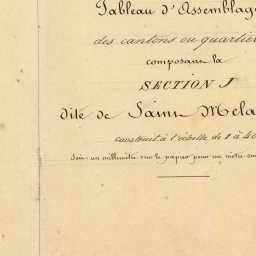 Tableau d'Assemblag
des cantons ou quartier
composant la
SECTION J
dite de Saint Mela
construit à l'échelle de 1 à 40
Soit un millimètre sur le papier pour un mètre sur